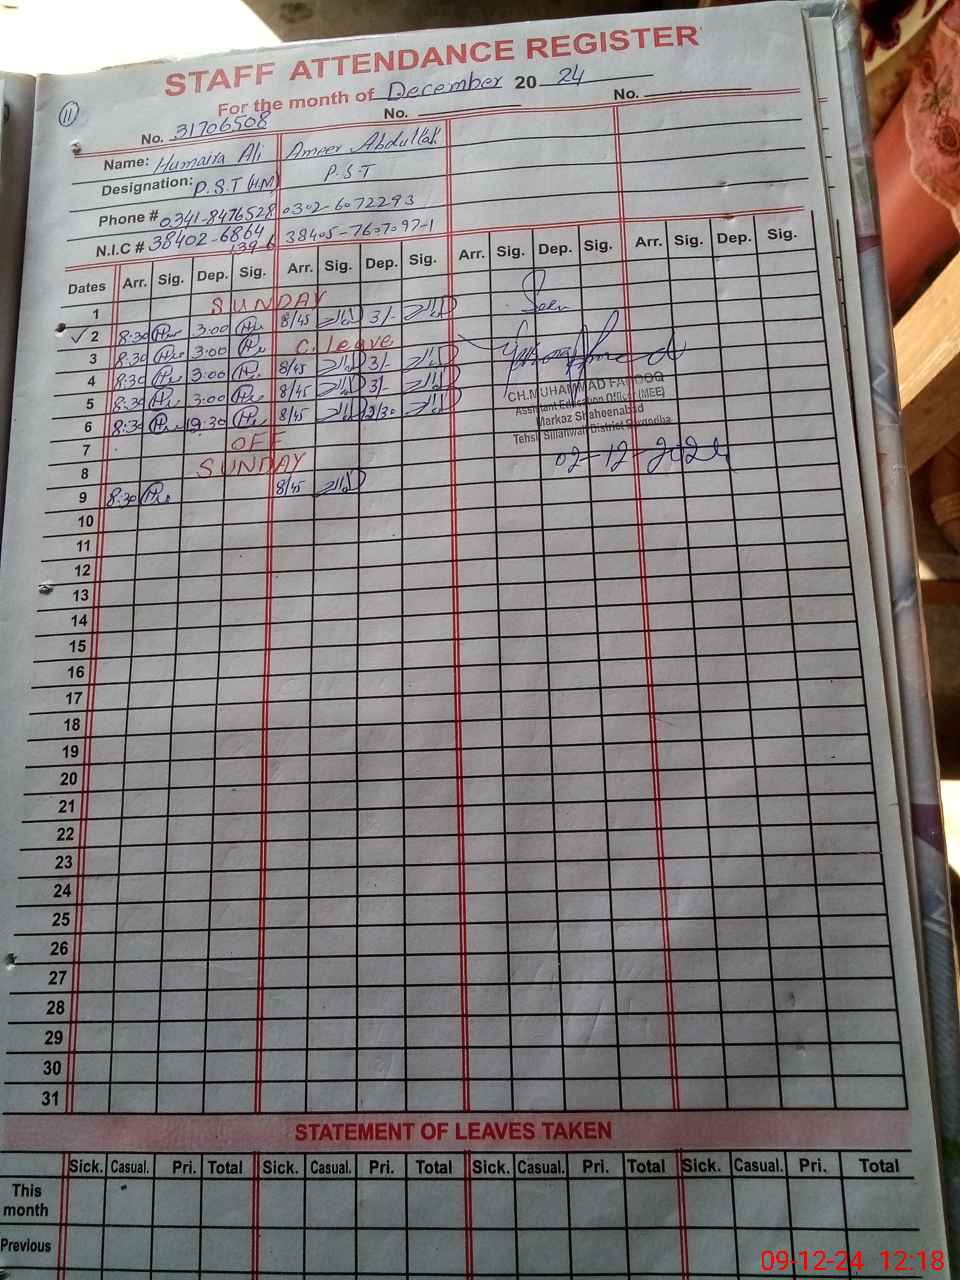 STAFF ATTENDANCE REGISTER
For the month of December 20 24
11
No. 31706508 No. No.
Name: Humaira Ali Ameer Abdullah
Designation: P.S.T (H.M) P.S.T
Phone # 0341-8476528 0302-6072293
N.I.C # 38402-6864 38405-7607097-1
139 6
Dates Arr. Sig. Dep. Sig. Arr. Sig. Dep. Sig. Arr. Sig. Dep. Sig. Arr. Sig. Dep. Sig.
1 SUNDAY
2 8:30 3:00 8/45 3/-
3 8:30 3:00 C. leave
4 8:30 3:00 8/45 3/-
5 8:30 3:00 8/45 3/-
6 8:30 12:30 8/45 12/30
7 OFF
8 SUNDAY
9 8:30 8/45
CH.MUHAMMAD FAROOQ
Assistant Education Officer (MEE)
Markaz Shaheenabad
Tehsil Sillanwali District Sargodha
02-12-2024
10
11
12
13
14
15
16
17
18
19
20
21
22
23
24
25
26
27
28
29
30
31
STATEMENT OF LEAVES TAKEN
Sick. Casual. Pri. Total Sick. Casual. Pri. Total Sick. Casual. Pri. Total Sick. Casual. Pri. Total
This month
Previous
09-12-24 12:18